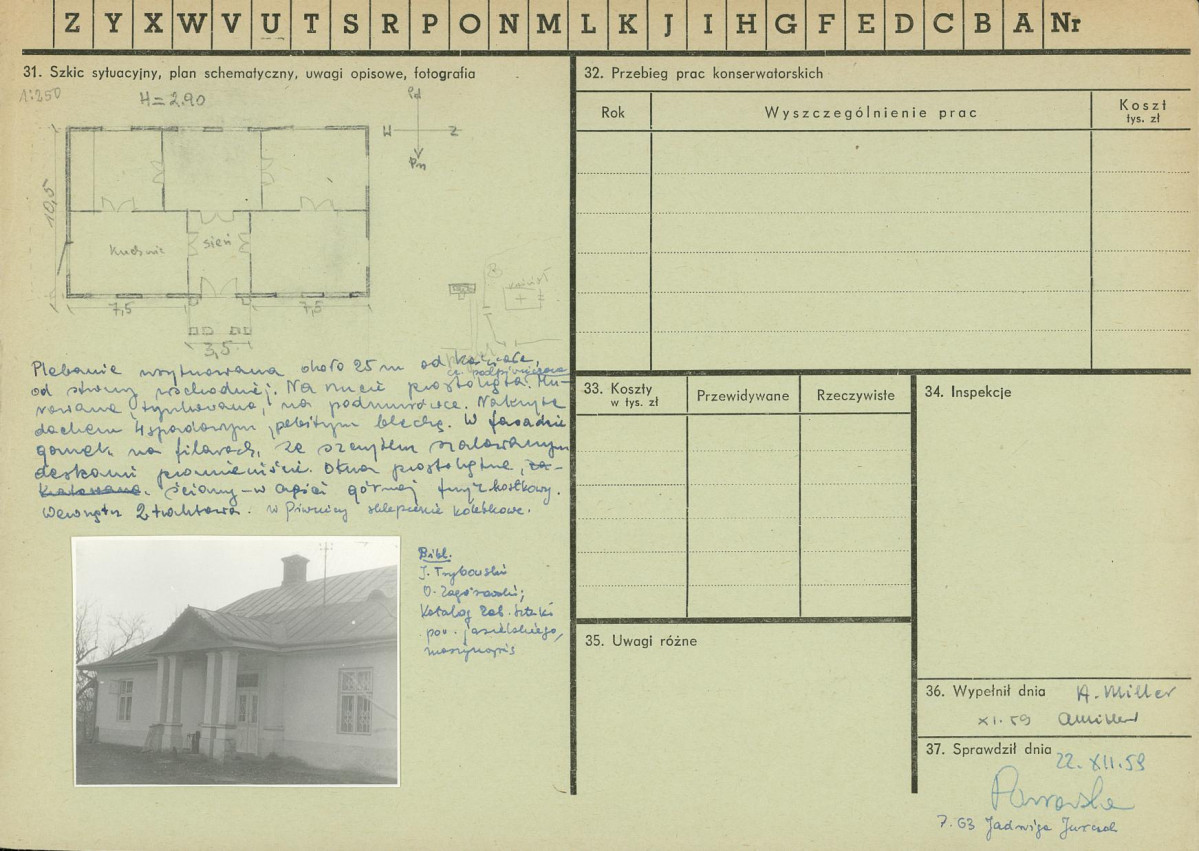 Z Y X W V U T S R P O N M L K J I H G F E D C B A Nr
31. Szkic sytuacyjny, plan schematyczny, uwagi opisowe, fotografia
1:250
H = 2.90
Pd
W Z
Pn
10,5
Kuchnia
sień
7,5
7,5
3,5
Plebania usytuowana około 25 m od kościoła,
cz. podpiwniczona
od strony wschodniej. Na rzucie prostokąta. Mu-
rowana, tynkowana, na podmurówce. Nakryta
dachem 4 spadowym, pobitym blachą. W fasadzie
ganek na filarach, ze szczytem szalowanym
deskami promieniście. Okna prostokątne, za-
kratowane. ściany - w części górnej fryz kostkowy.
Wewnątrz 2 traktowa. w Piwnicy sklepienie kolebkowe.
Bibl.
J. Trybowski
O. Zagórowski;
Katalog Zab. Sztuki
pow. jasielskiego,
maszynopis
32. Przebieg prac konserwatorskich
Rok
Wyszczególnienie prac
Koszt
tys. zł
33. Koszty
w tys. zł
Przewidywane
Rzeczywiste
34. Inspekcje
35. Uwagi różne
36. Wypełnił dnia A. Miller
XI. 59 AMiller
37. Sprawdził dnia
22. XII. 59
7. 63 Jadwiga